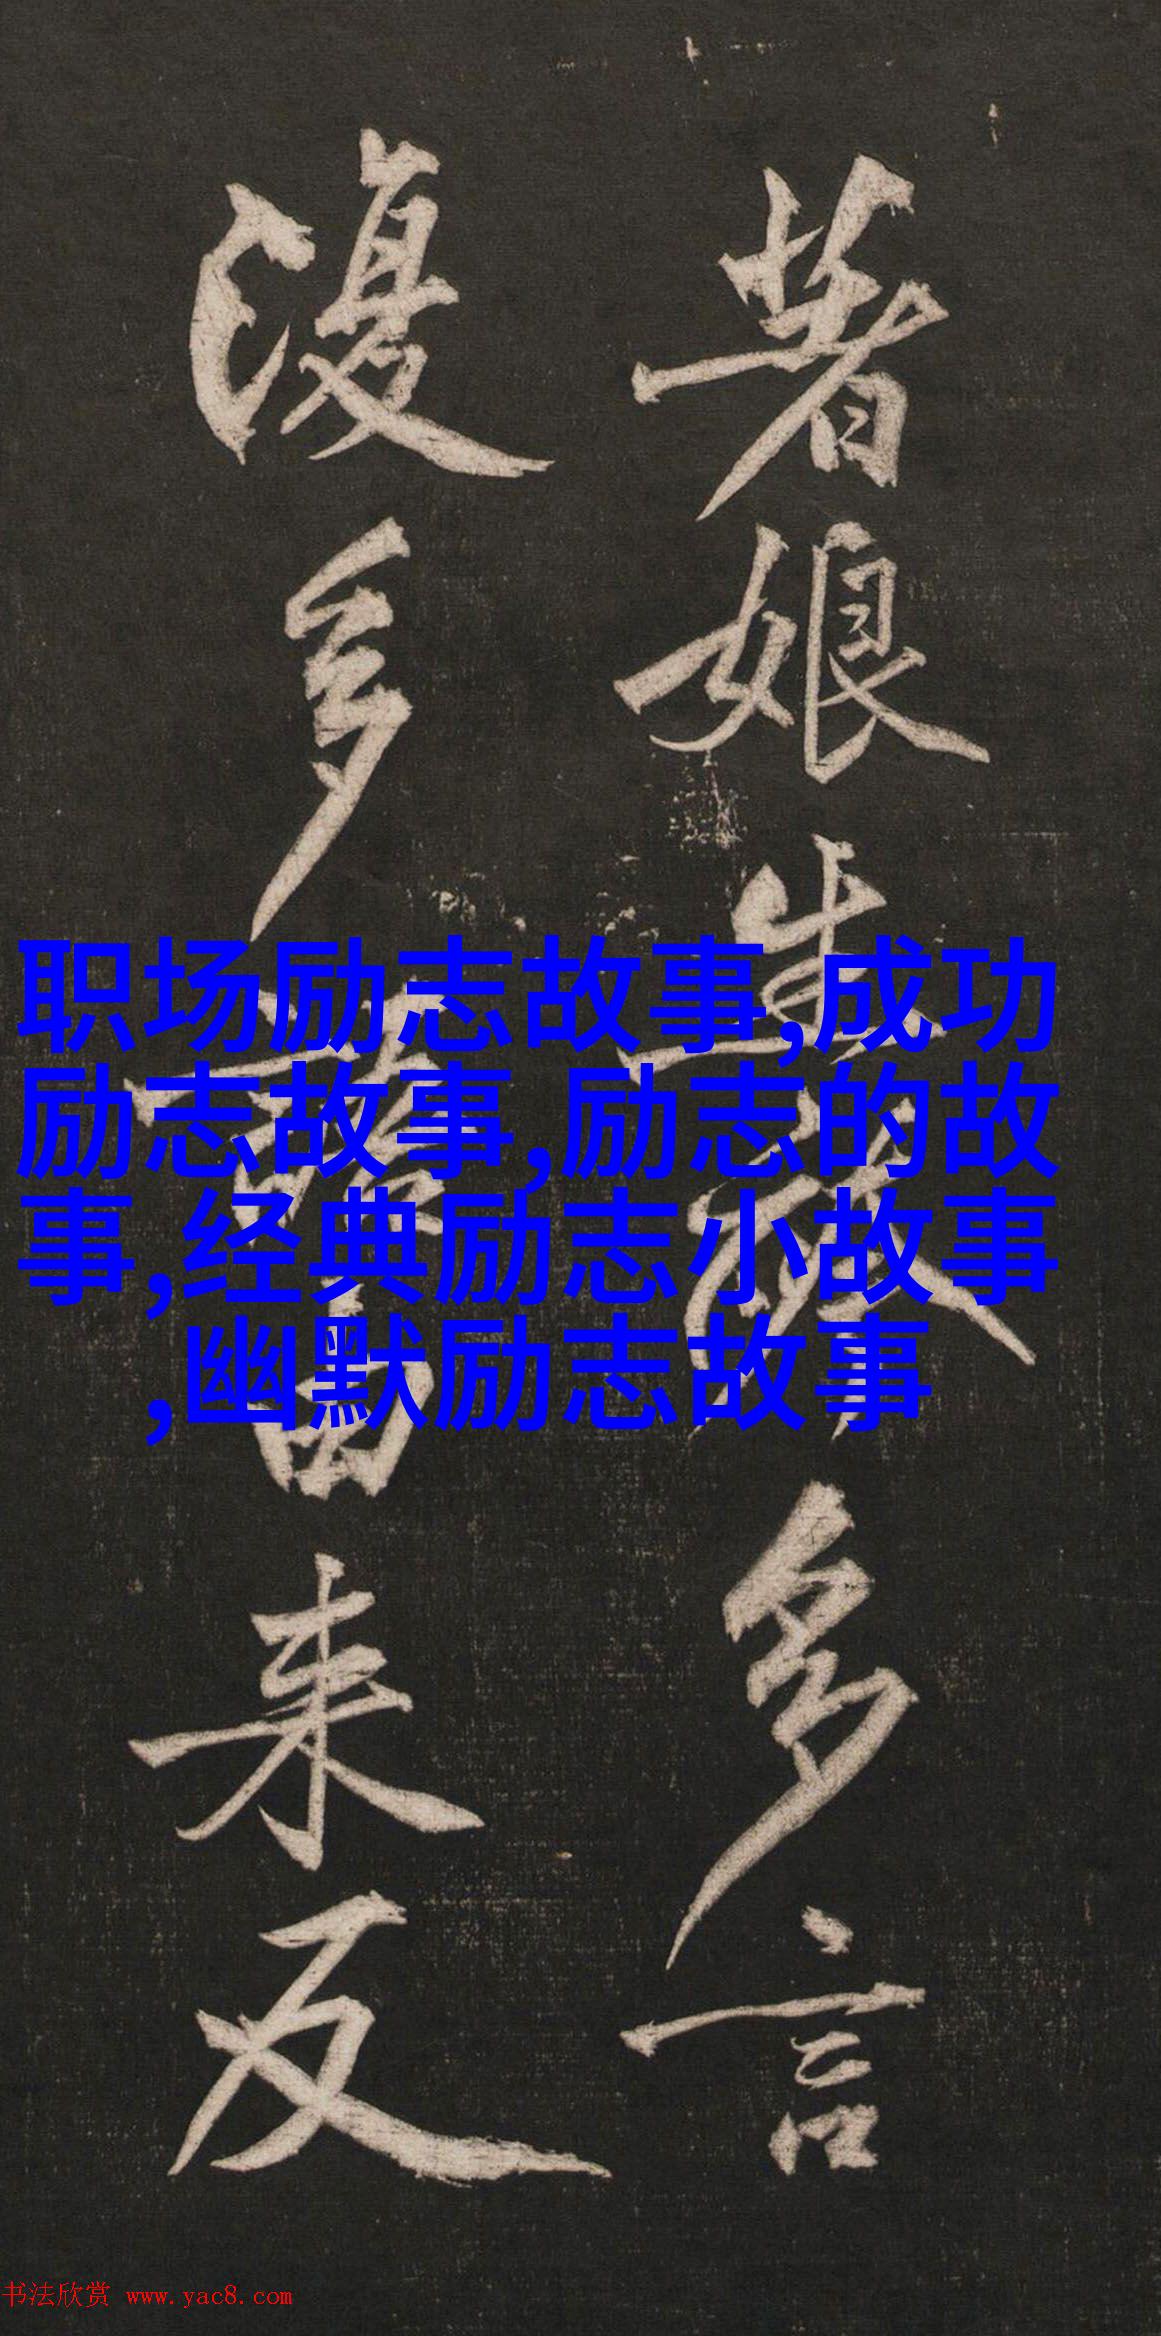 娘生多言
多語由来反
职场励志故事,成功
励志故事,励志的故
事,经典励志小故事
,幽默励志故事
书法欣赏 www.yac8.com